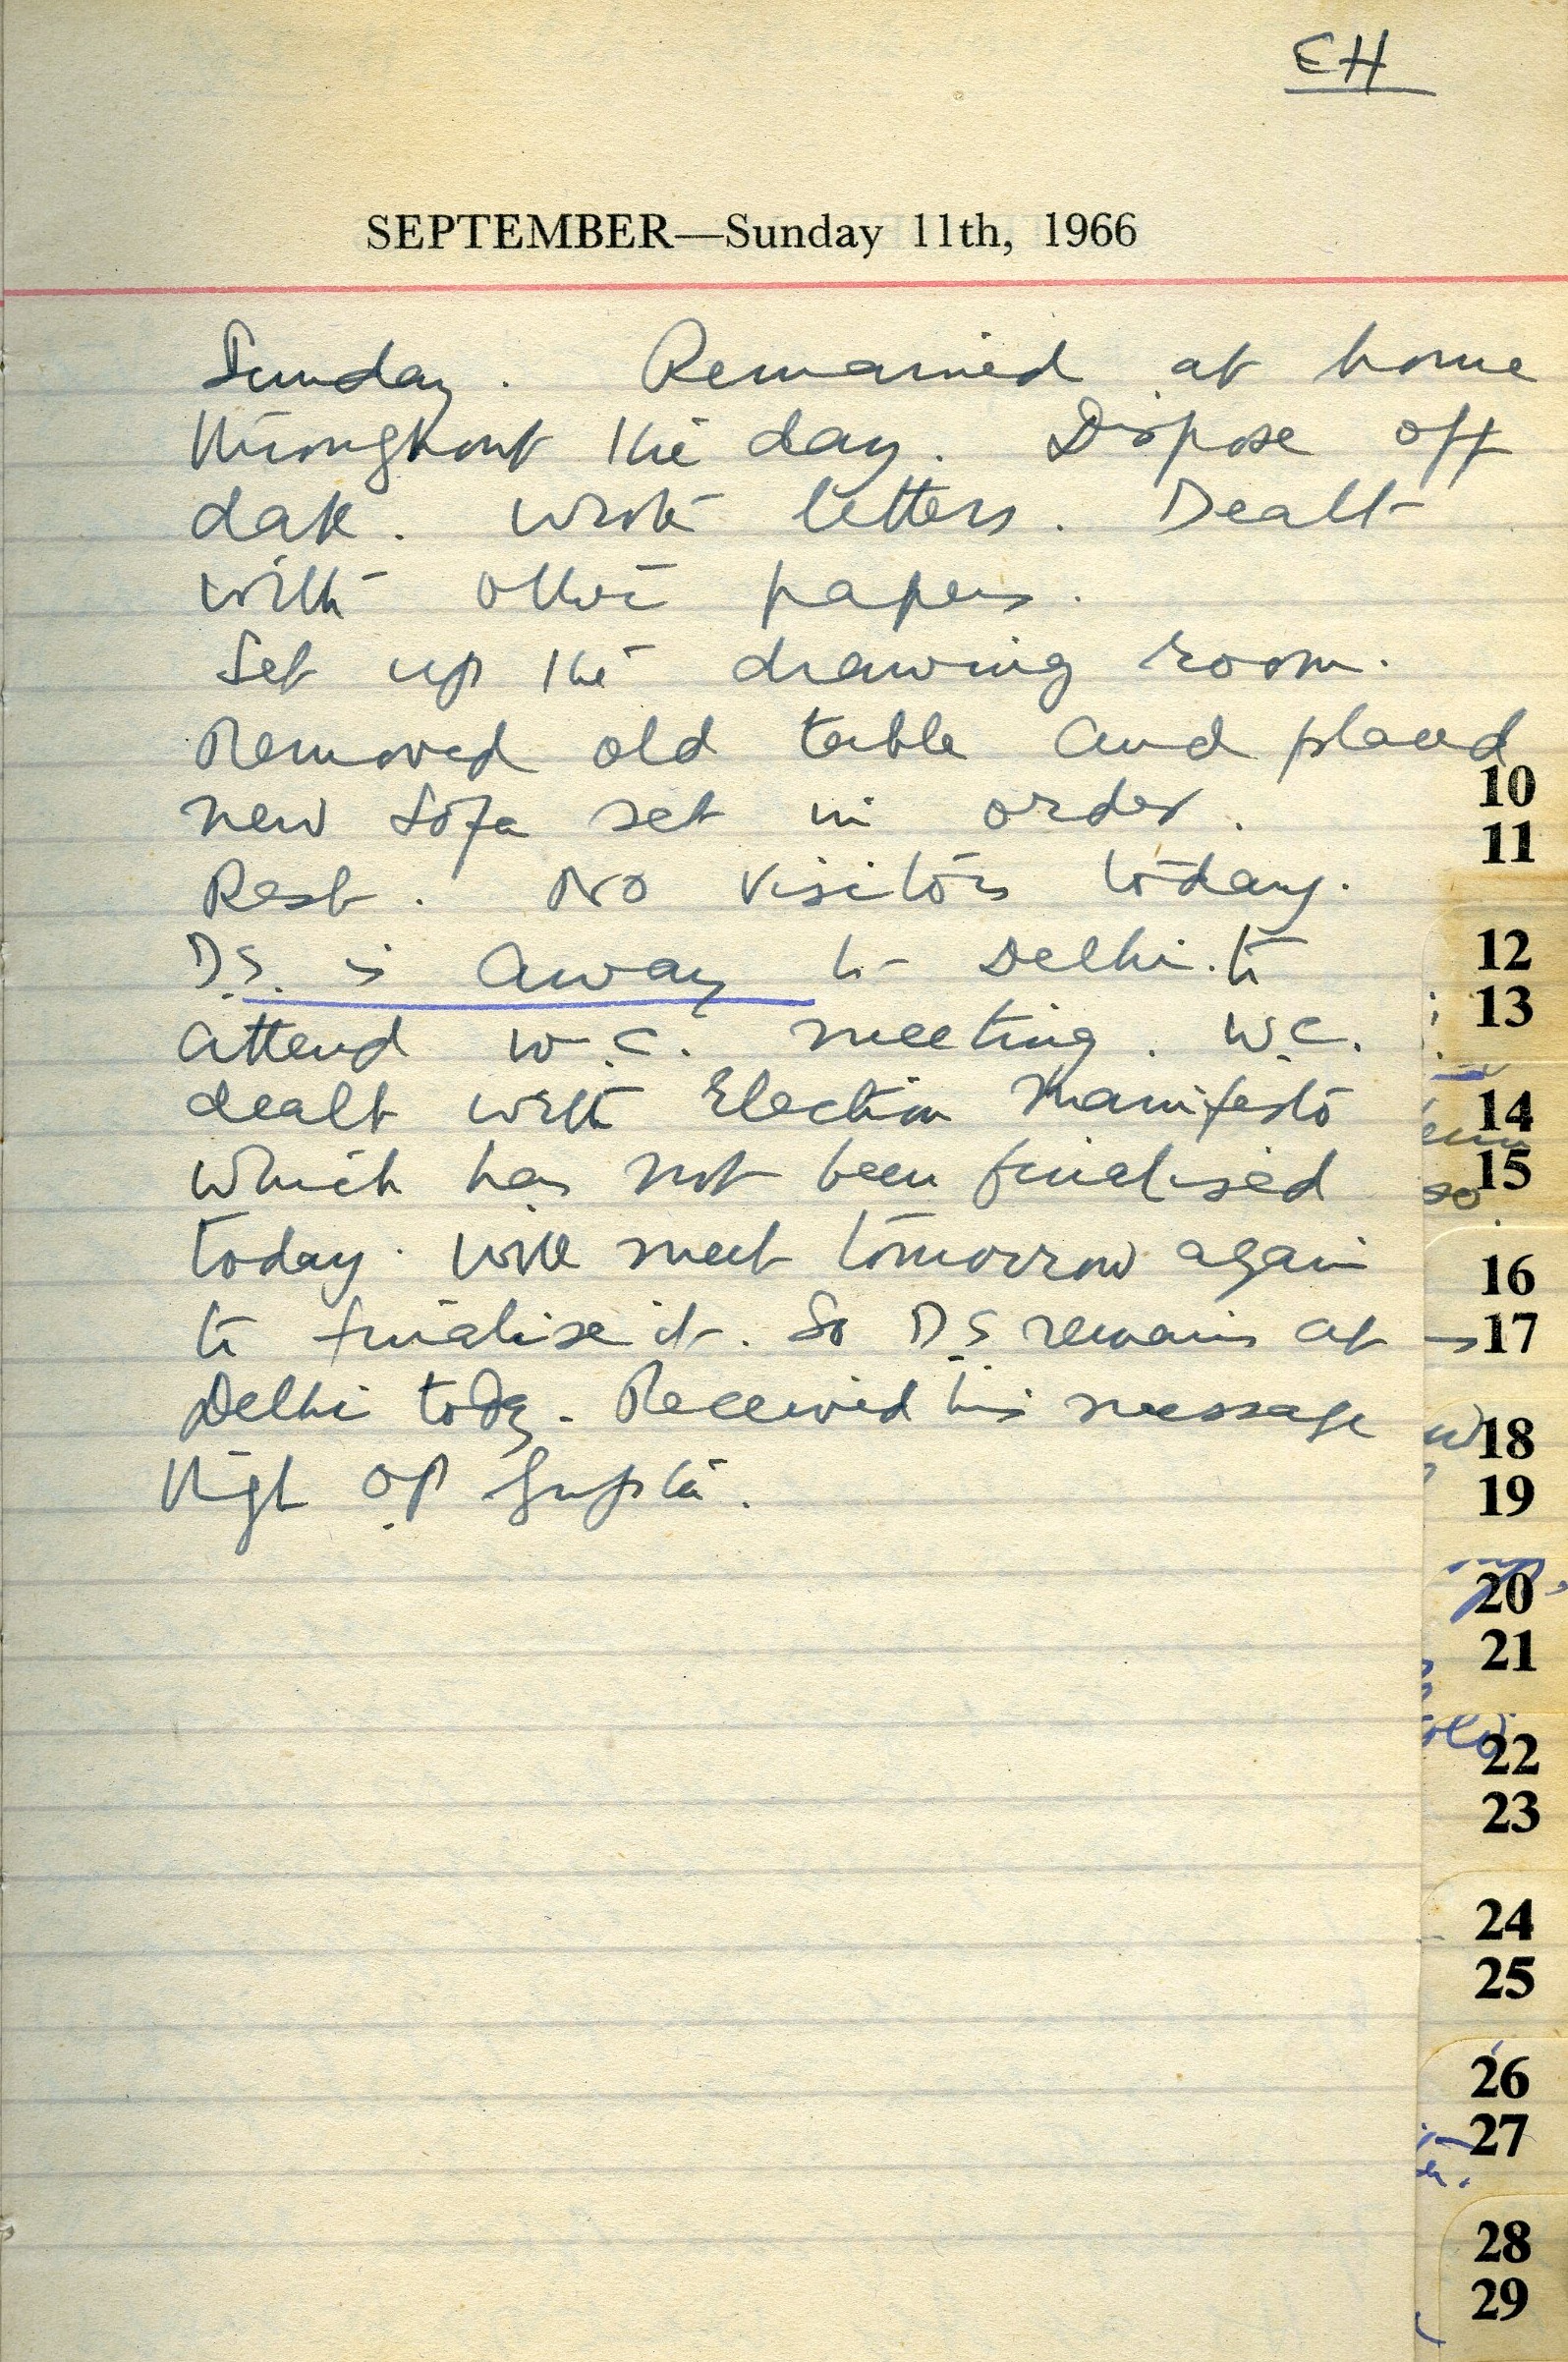 EH
SEPTEMBER—Sunday 11th, 1966
Sunday. Remained at home
throughout the day. Dispose off
dak. Wrote letters. Dealt
with other papers.
Set up the drawing room.
Removed old table and placed
new sofa set in order.
Rest. No visitors today.
D.S. is away to Delhi to
attend W.C. meeting. W.C.
dealt with Election Manifesto
which has not been finalised
today. Will meet tomorrow again
to finalise it. So D.S. remains at
Delhi today. Received his message
through OP Gupta.
10
11
12
13
14
15
so
16
17
18
19
20
21
22
23
24
25
26
27
28
29